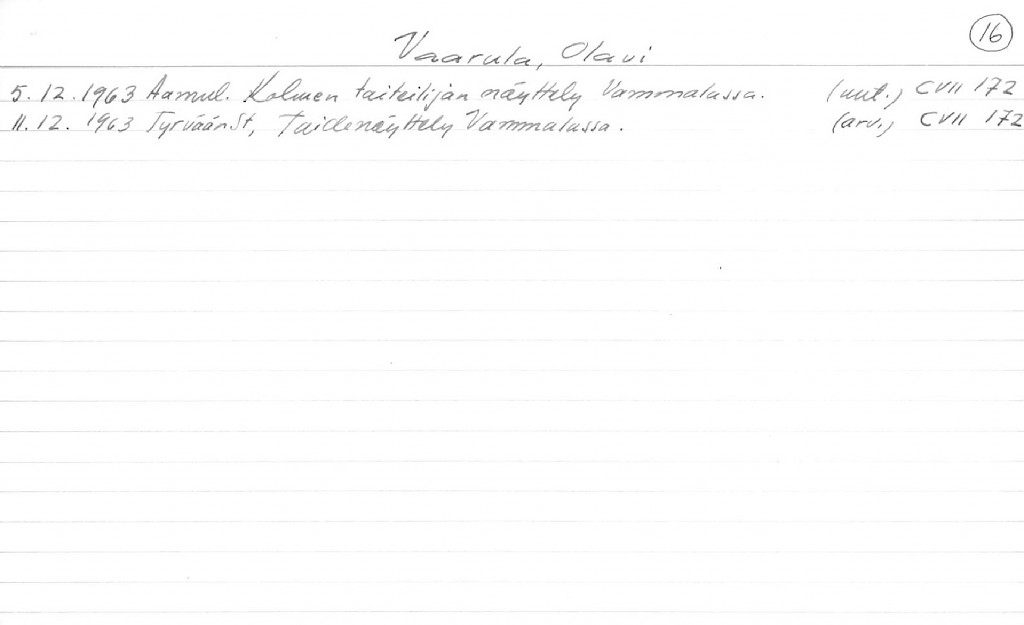 16
Vaarula, Olavi
5.12.1963 Aamul. Kolmen taiteilijan näyttely Vammalassa. (uut.) CVII 172
11.12.1963 TyrväänSt, Taidenäyttely Vammalassa. (arv.) CVII 172